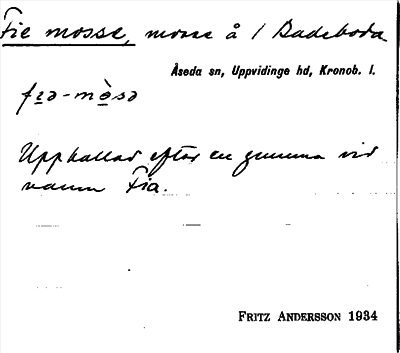 Fie mosse, mosse å / Badeboda
Åseda sn, Uppvidinge hd, Kronob. l.
fɪə-mòsə
Uppkallad efter en gumma vid
namn Fia.
FRITZ ANDERSSON 1934